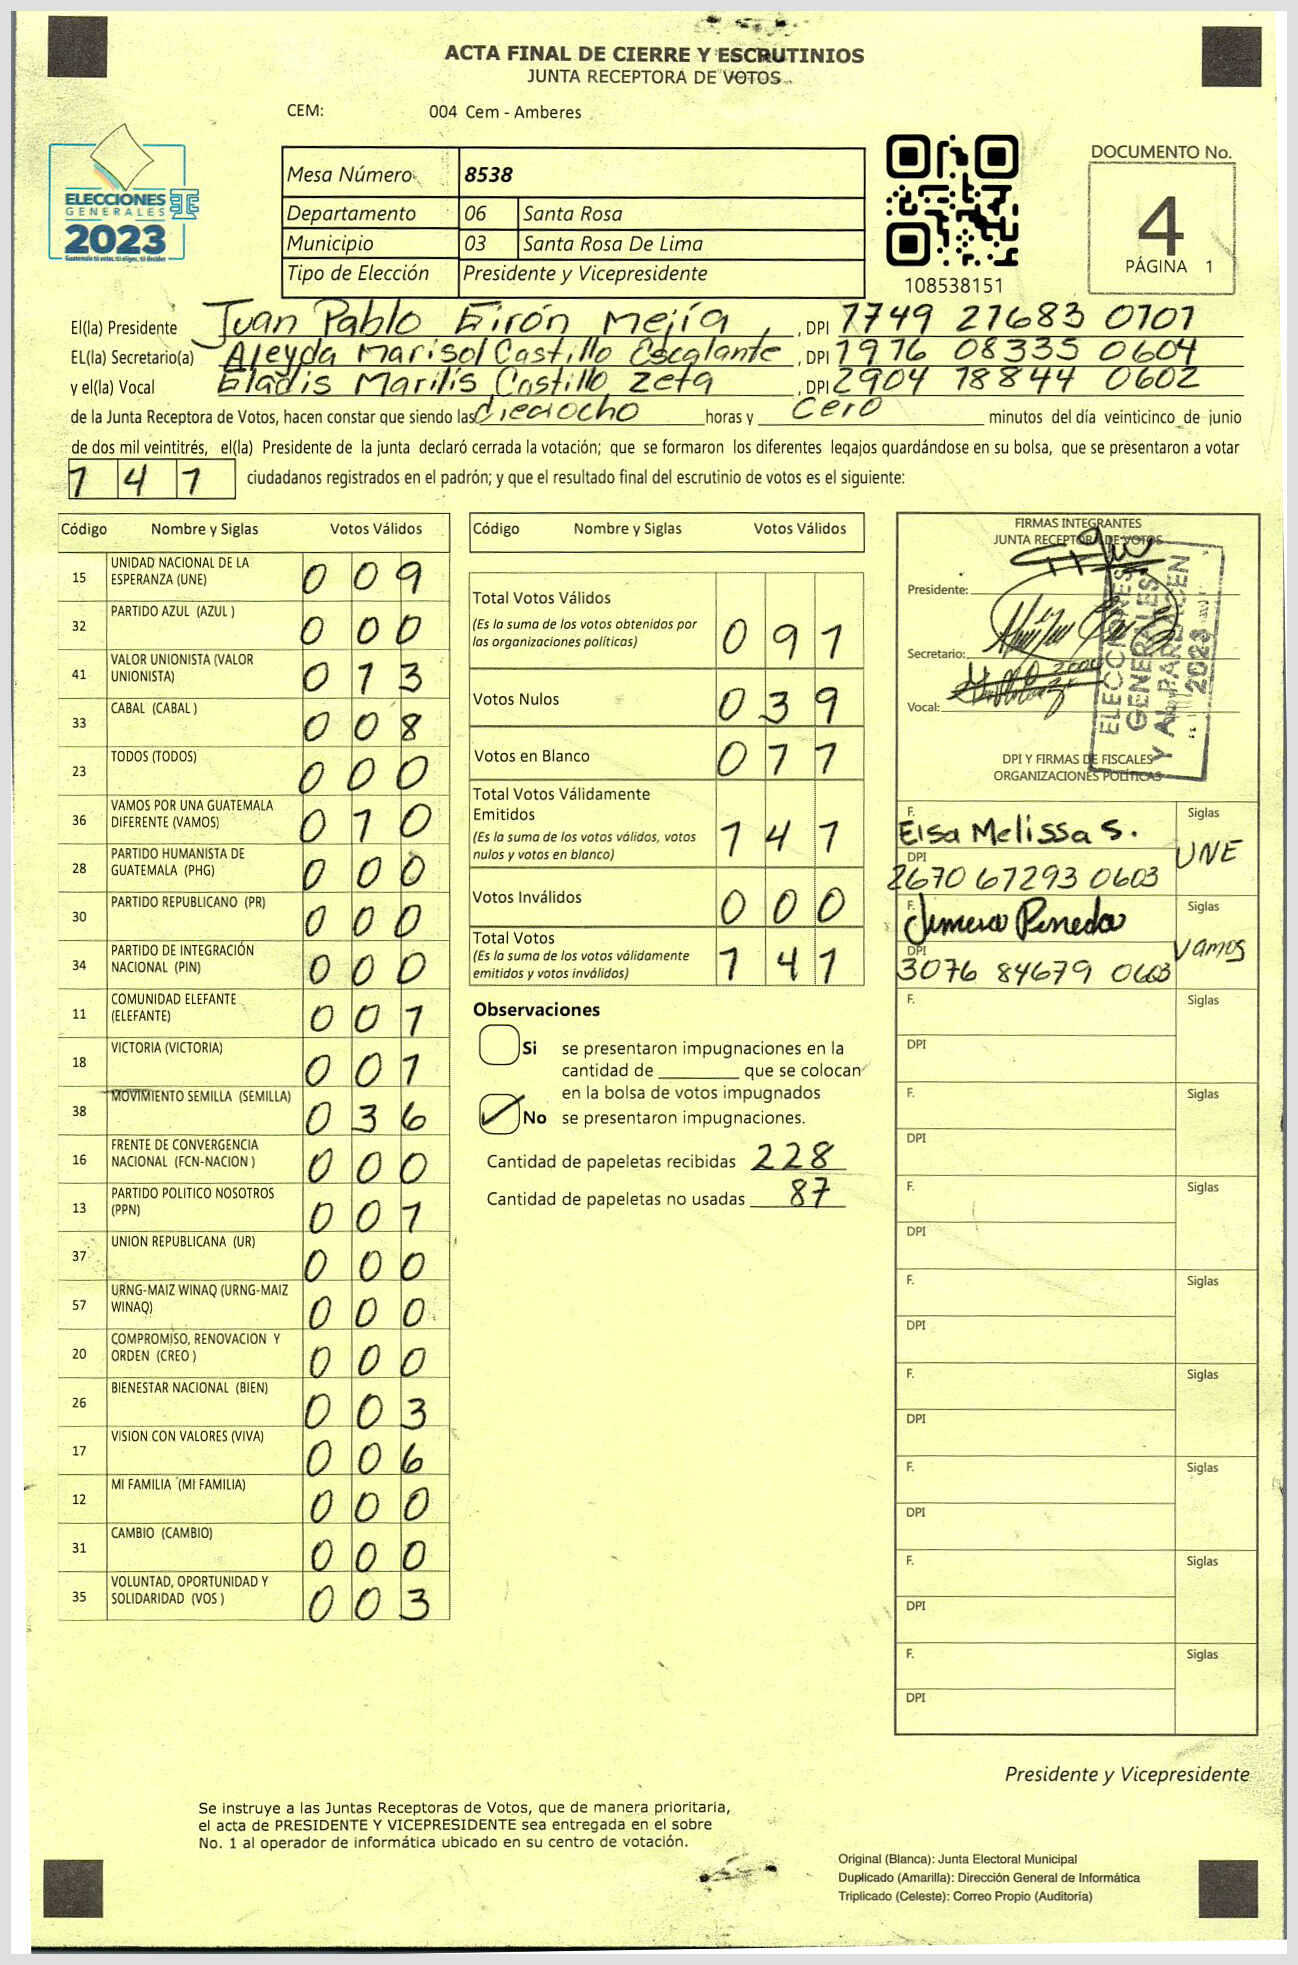 ACTA FINAL DE CIERRE Y ESCRUTINIOS
JUNTA RECEPTORA DE VOTOS
CEM: 004 Cem - Amberes
ELECCIONES
GENERALES
2023
Guatemala tú votas, tú eliges, tú decides
Mesa Número 8538
Departamento 06 Santa Rosa
Municipio 03 Santa Rosa De Lima
Tipo de Elección Presidente y Vicepresidente
108538151
DOCUMENTO No.
4
PÁGINA 1
El(la) Presidente Juan Pablo Girón Mejía, DPI 1749 21683 0101
EL(la) Secretario(a) Aleyda Marisol Castillo Escalante, DPI 1976 08335 0604
y el(la) Vocal Gladis Marilis Castillo Zeta, DPI 2904 18844 0602
de la Junta Receptora de Votos, hacen constar que siendo las dieciocho horas y cero minutos del día veinticinco de junio
de dos mil veintitrés, el(la) Presidente de la junta declaró cerrada la votación; que se formaron los diferentes legajos guardándose en su bolsa, que se presentaron a votar
1 4 1 ciudadanos registrados en el padrón; y que el resultado final del escrutinio de votos es el siguiente:
Código Nombre y Siglas Votos Válidos
15 UNIDAD NACIONAL DE LA ESPERANZA (UNE) 0 0 9
32 PARTIDO AZUL (AZUL ) 0 0 0
41 VALOR UNIONISTA (VALOR UNIONISTA) 0 1 3
33 CABAL (CABAL ) 0 0 8
23 TODOS (TODOS) 0 0 0
36 VAMOS POR UNA GUATEMALA DIFERENTE (VAMOS) 0 1 0
28 PARTIDO HUMANISTA DE GUATEMALA (PHG) 0 0 0
30 PARTIDO REPUBLICANO (PR) 0 0 0
34 PARTIDO DE INTEGRACIÓN NACIONAL (PIN) 0 0 0
11 COMUNIDAD ELEFANTE (ELEFANTE) 0 0 1
18 VICTORIA (VICTORIA) 0 0 1
38 MOVIMIENTO SEMILLA (SEMILLA) 0 3 6
16 FRENTE DE CONVERGENCIA NACIONAL (FCN-NACION ) 0 0 0
13 PARTIDO POLITICO NOSOTROS (PPN) 0 0 1
37 UNION REPUBLICANA (UR) 0 0 0
57 URNG-MAIZ WINAQ (URNG-MAIZ WINAQ) 0 0 0
20 COMPROMISO, RENOVACION Y ORDEN (CREO ) 0 0 0
26 BIENESTAR NACIONAL (BIEN) 0 0 3
17 VISION CON VALORES (VIVA) 0 0 6
12 MI FAMILIA (MI FAMILIA) 0 0 0
31 CAMBIO (CAMBIO) 0 0 0
35 VOLUNTAD, OPORTUNIDAD Y SOLIDARIDAD (VOS ) 0 0 3
Código Nombre y Siglas Votos Válidos
Total Votos Válidos
(Es la suma de los votos obtenidos por
las organizaciones políticas) 0 9 1
Votos Nulos 0 3 9
Votos en Blanco 0 1 1
Total Votos Válidamente
Emitidos
(Es la suma de los votos válidos, votos
nulos y votos en blanco) 1 4 1
Votos Inválidos 0 0 0
Total Votos
(Es la suma de los votos válidamente
emitidos y votos inválidos) 1 4 1
Observaciones
Si se presentaron impugnaciones en la
cantidad de ________ que se colocan
en la bolsa de votos impugnados
No se presentaron impugnaciones.
Cantidad de papeletas recibidas 228
Cantidad de papeletas no usadas 87
FIRMAS INTEGRANTES
JUNTA RECEPTORA DE VOTOS
Presidente:
Secretario:
Vocal:
ELECCIONES
GENERALES
Y AL PARLACEN
2023
DPI Y FIRMAS DE FISCALES
ORGANIZACIONES POLÍTICAS
F. Elsa Melissa S. Siglas UNE
DPI 2670 67293 0603
F. Jimena Pineda Siglas Vamos
DPI 3076 84679 0603
F. Siglas
DPI
F. Siglas
DPI
F. Siglas
DPI
F. Siglas
DPI
F. Siglas
DPI
F. Siglas
DPI
F. Siglas
DPI
F. Siglas
DPI
Presidente y Vicepresidente
Se instruye a las Juntas Receptoras de Votos, que de manera prioritaria,
el acta de PRESIDENTE Y VICEPRESIDENTE sea entregada en el sobre
No. 1 al operador de informática ubicado en su centro de votación.
Original (Blanca): Junta Electoral Municipal
Duplicado (Amarilla): Dirección General de Informática
Triplicado (Celeste): Correo Propio (Auditoría)